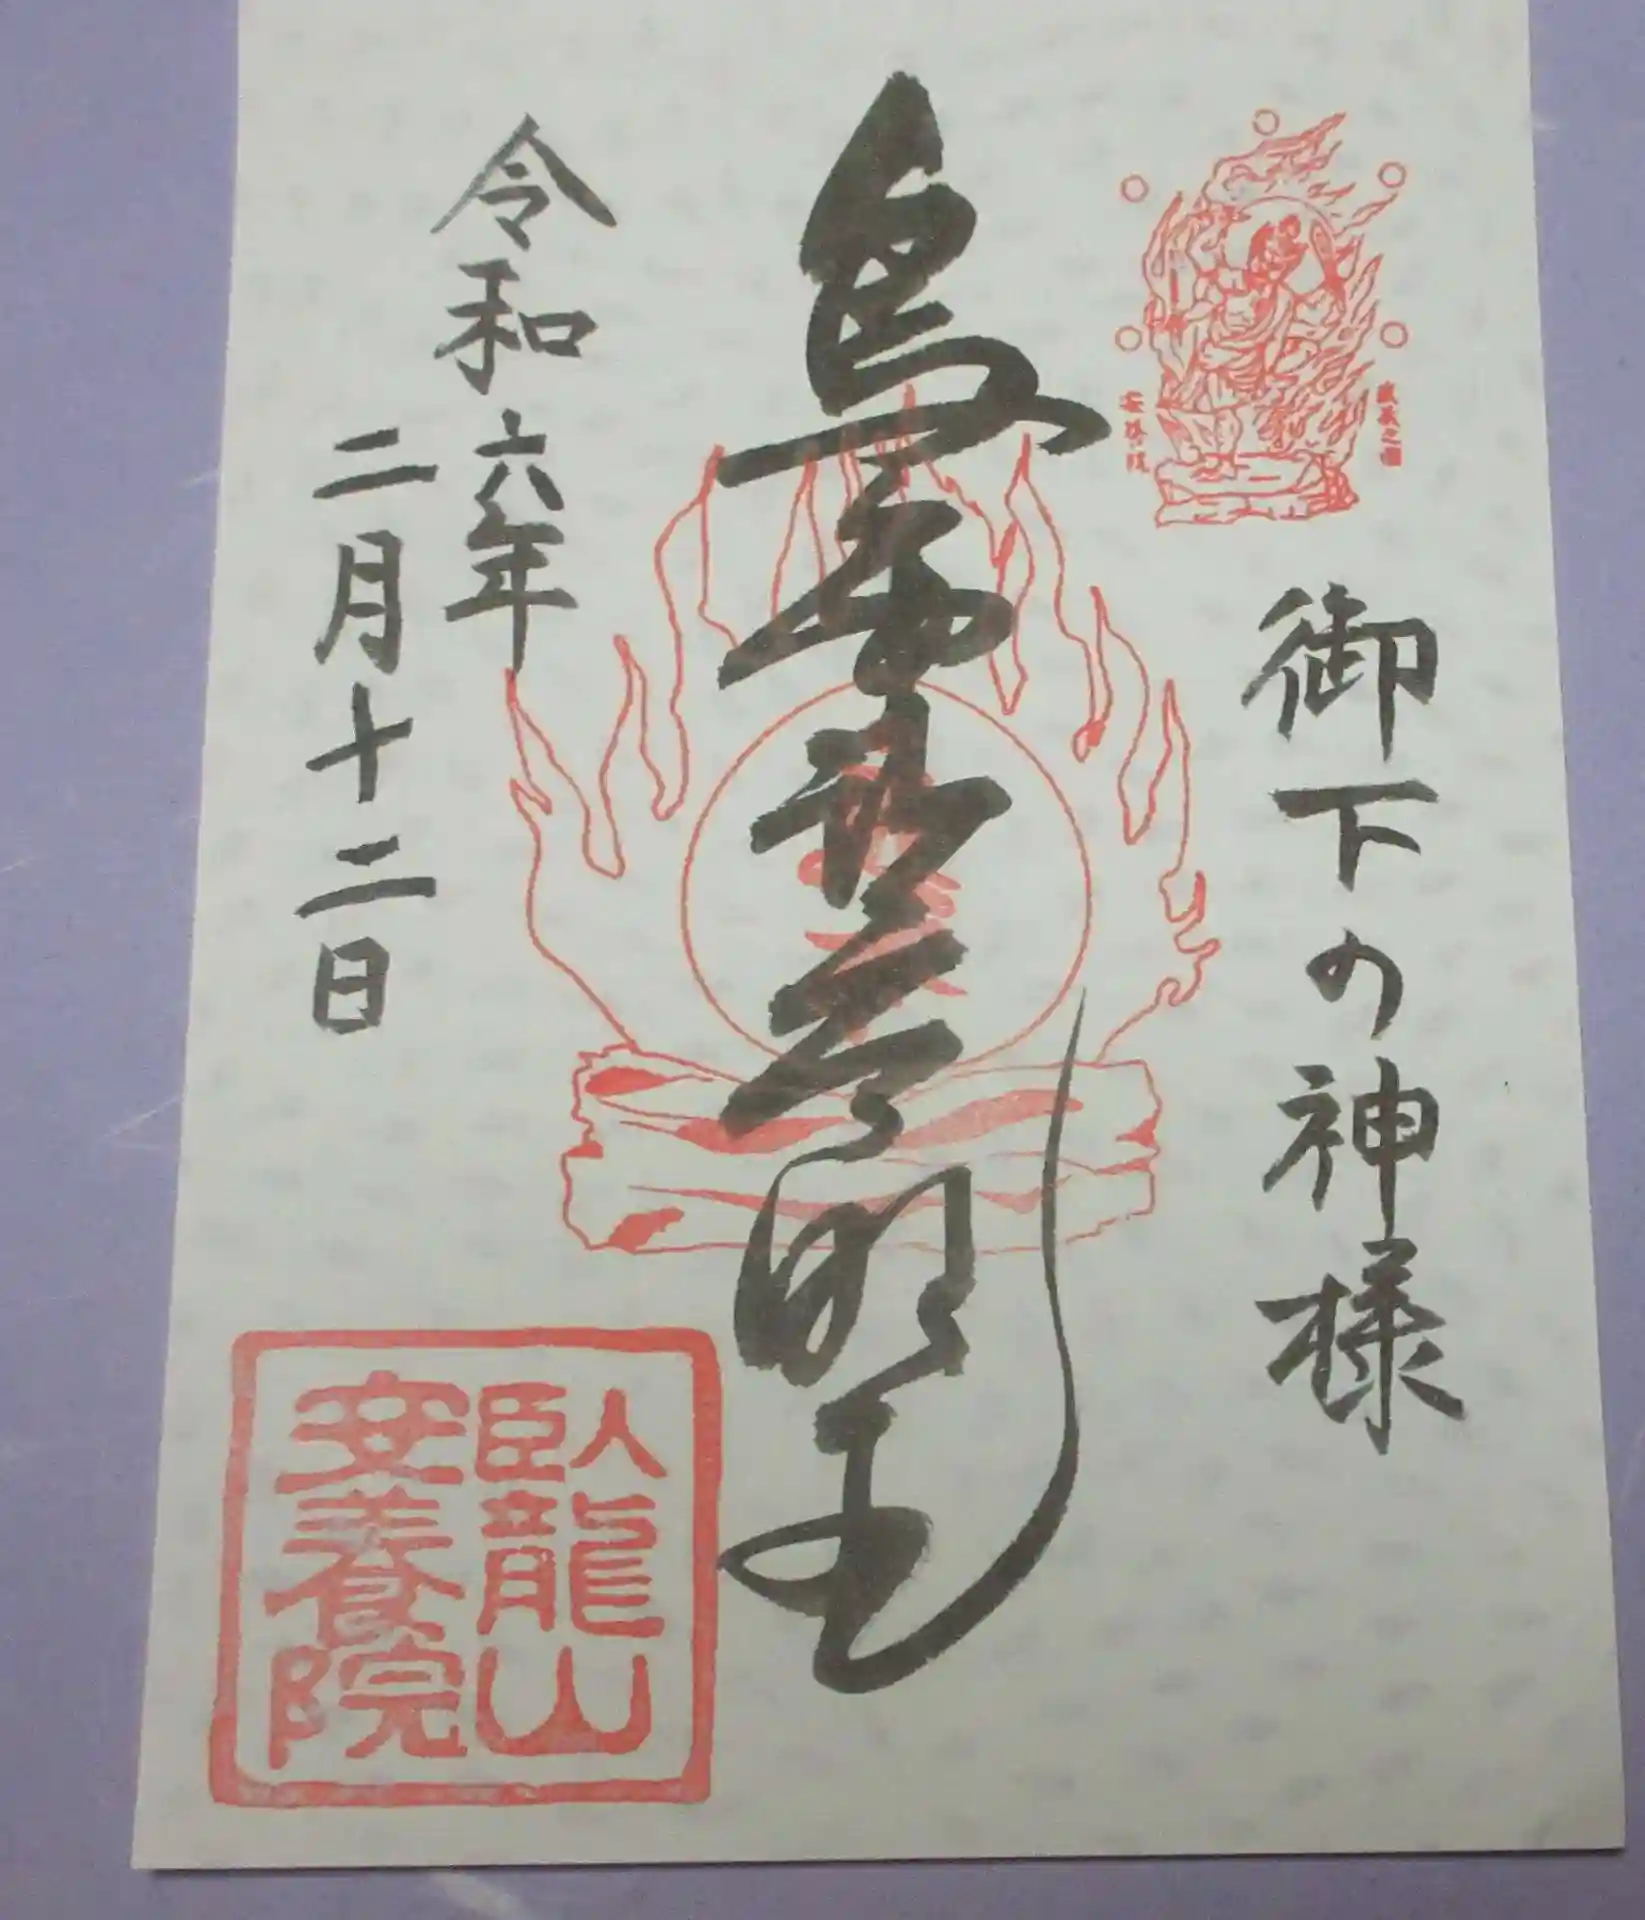 御下の神様
烏枢沙摩明王
令和六年
二月十二日
臥龍山
安養院